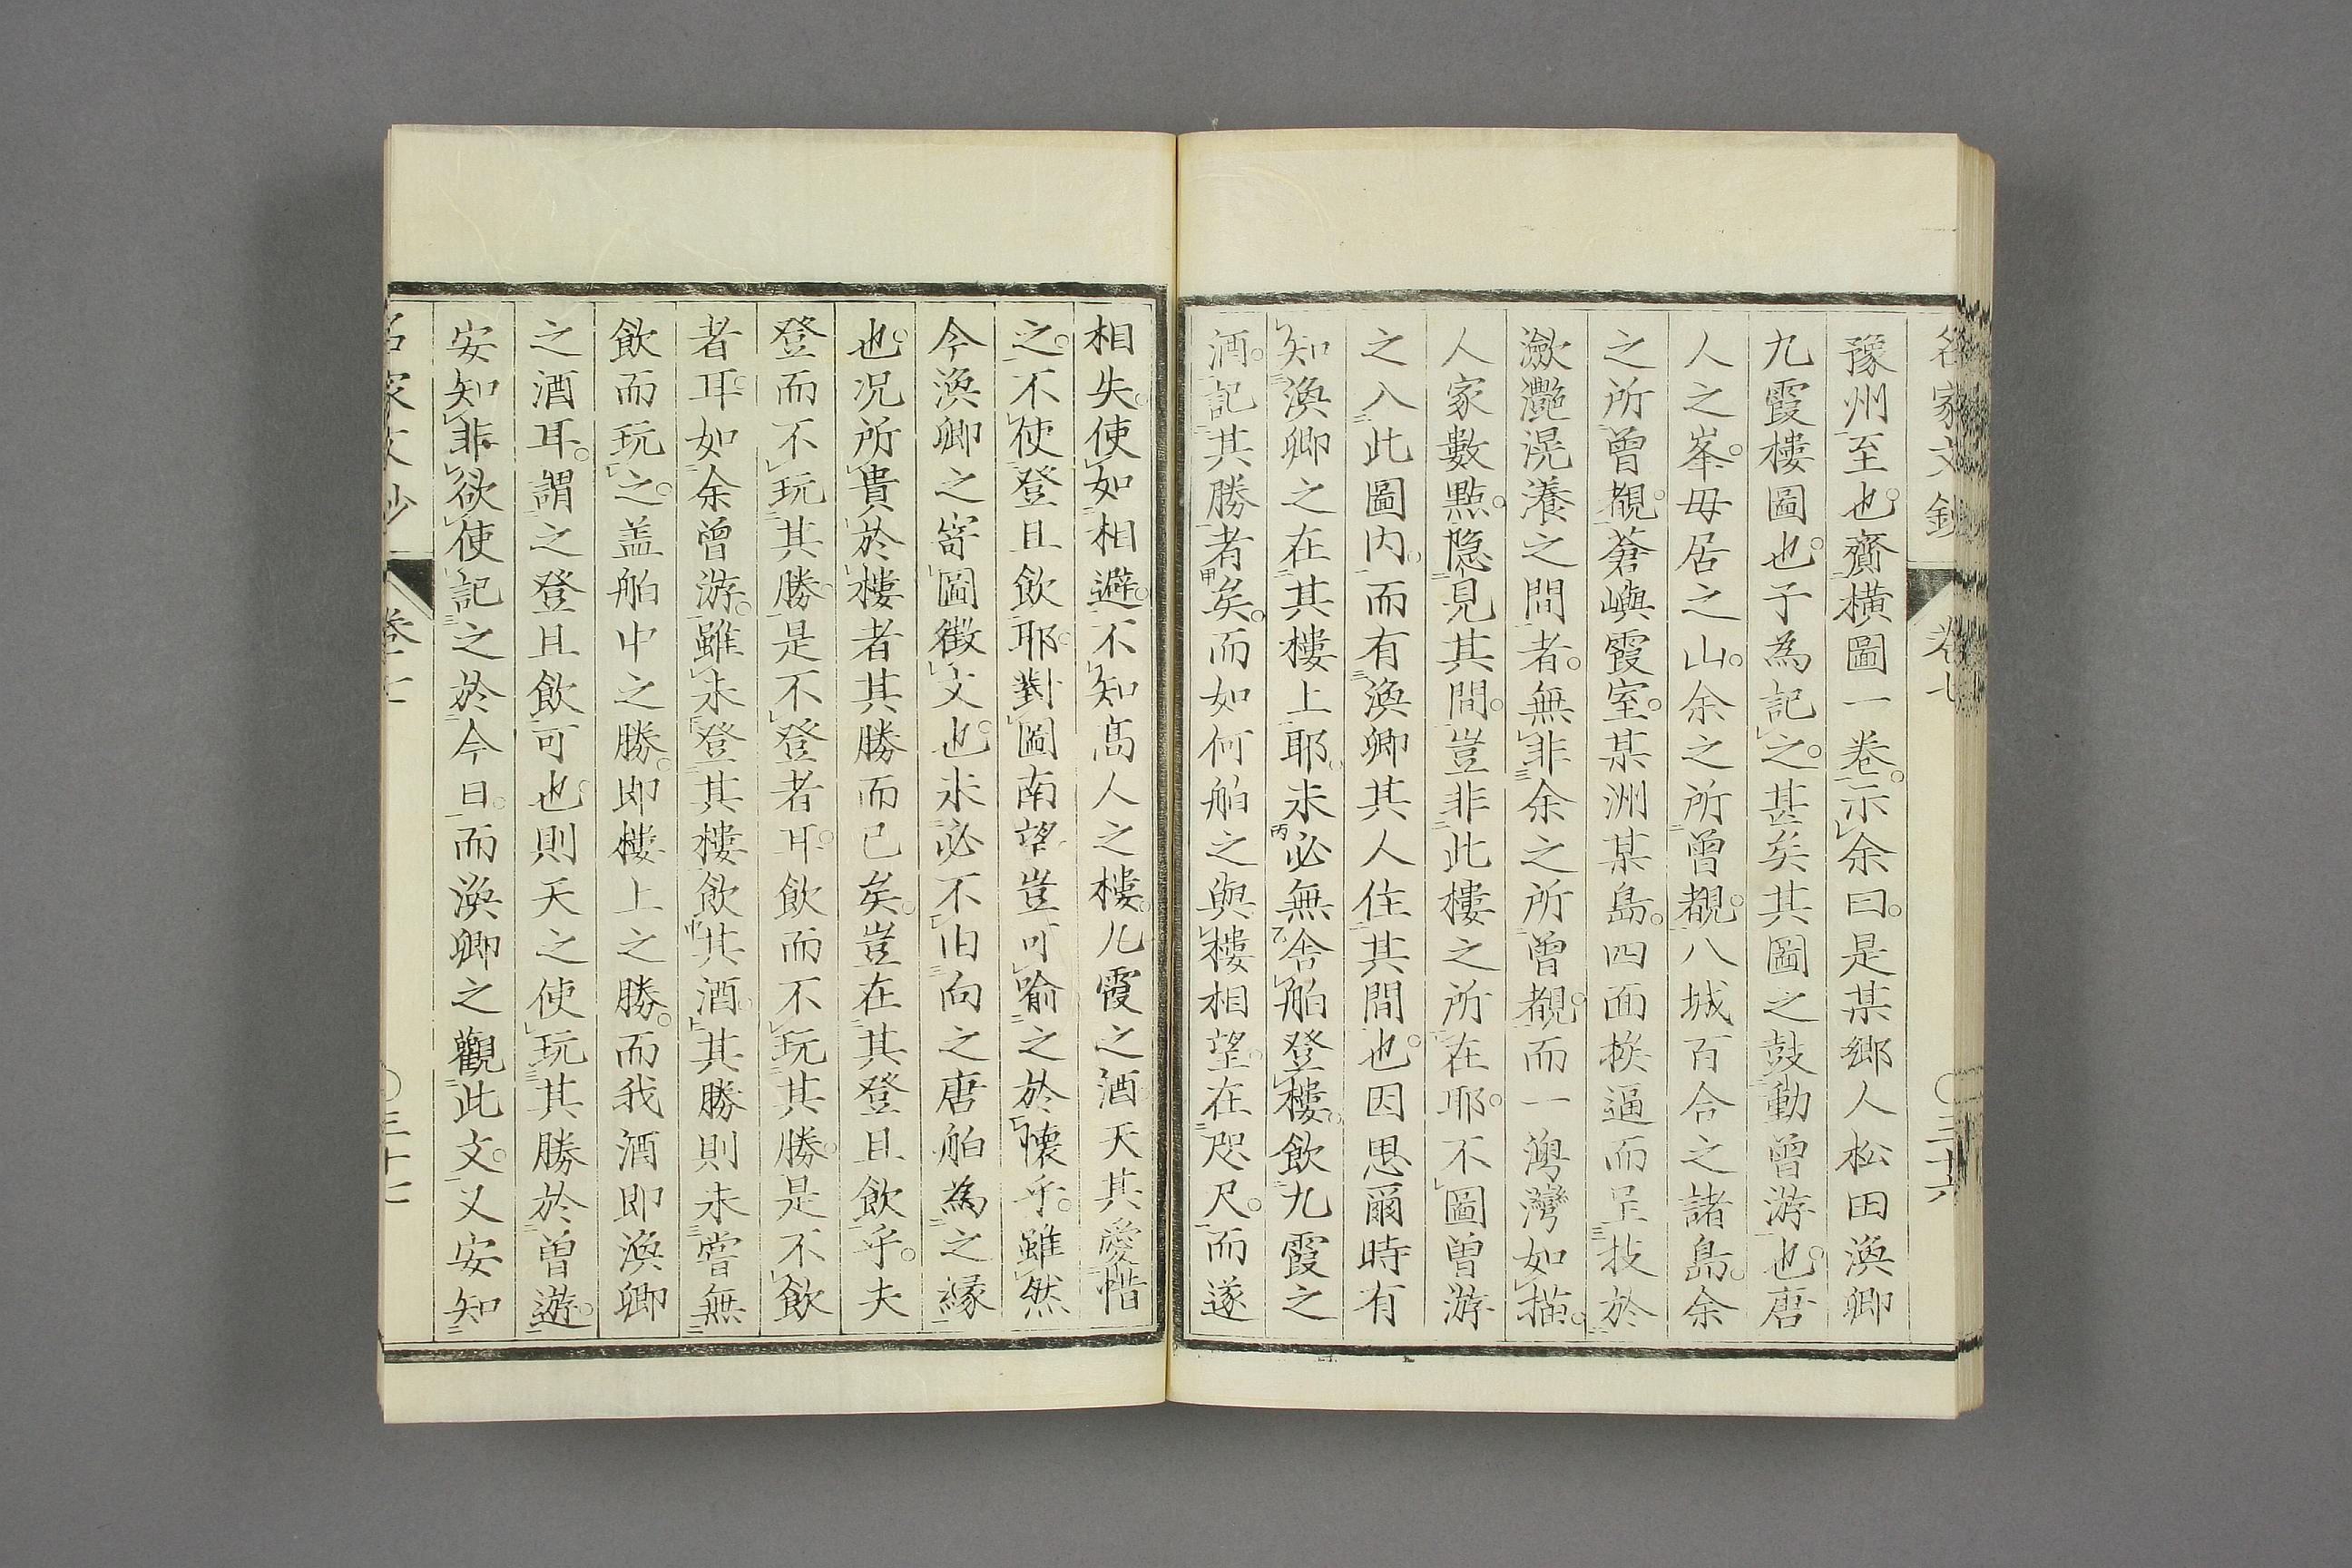 名家文鈔 卷七 〇三十六
豫州至也齎橫圖一卷示余曰是某鄉人松田渙卿
九霞樓圖也子為記之甚矣其圖之鼓動曾游也唐
人之峯毋居之山余之所曾覩八城百合之諸島余
之所曾覩蒼嶼霞室某洲某島四面挨逼而呈技於
瀲灔滉瀁之間者無非余之所曾覩而一灣灣如描
人家數點隐見其間豈非此樓之所在耶不圖曾游
之入此圖内而有渙卿其人住其間也因思爾時有
知渙卿之在其樓上耶未必無舎舶登樓飲九霞之
酒記其勝者矣而如何舶之與樓相望在咫尺而遂
相失使如相避不知髙人之樓九霞之酒天其愛惜
之不使登且飲耶對圖南望豈可喻之於懷乎雖然
今渙卿之寄圖徵文也未必不旧向之唐舶為之縁
也况所貴於樓者其勝而已矣豈在其登且飲乎夫
登而不玩其勝是不登者耳飲而不玩其勝是不飲
者耳如余曾游雖未登其樓飲其酒其勝則未嘗無
飲而玩之盖舶中之勝即樓上之勝而我酒即渙卿
之酒耳謂之登且飲可也則天之使玩其勝於曽遊
安知非欲使記之於今日而渙卿之觀此文又安知
名家文鈔 卷七 〇三十七